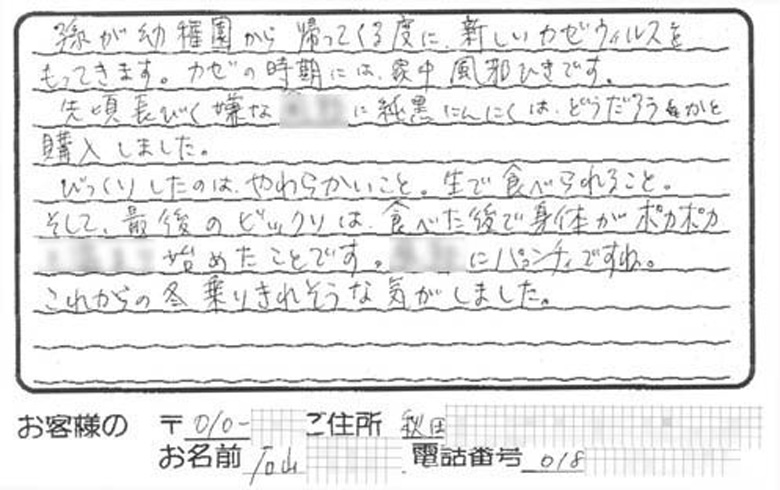 孫が幼稚園から帰ってくる度に、新しいカゼウィルスを
もってきます。カゼの時期には、家中風邪ひきです。
先頃長びく嫌な に純黒にんにくは、どうだろうかと
購入しました。
びっくりしたのは、やわらかいこと。生で食べられること。
そして、最後のビックリは、食べた後で身体がポカポカ
始めたことです。 にパンチィですね。
これからの冬乗りきれそうな気がしました。
お客様の 〒010- ご住所 秋田
お名前 石山 電話番号 018